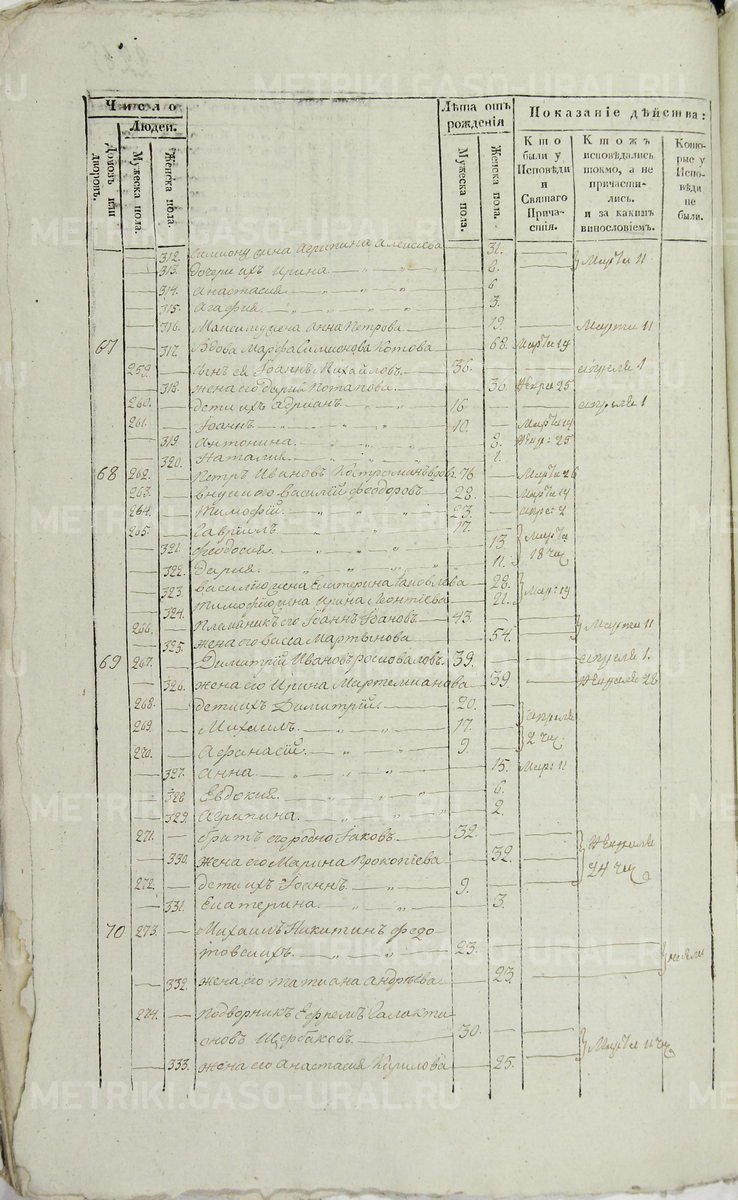 METRIKI.GASO-URAL.RU
Число
Людей.
Лѣта отъ рожденія
Показаніе дѣйства:
Домовъ или дворовъ.
Мужеска пола.
Женска пола.
Мужеска пола.
Женска пола.
Кто были у Исповѣди и Святаго Причастія.
Ктожъ исповѣдались токмо, а не причастились. и за какимъ винословіемъ.
Которые у Исповѣди не были.
312. жена Агрипина Алексѣева 31.
313. Дочери ихъ Ирина 8. Марта 11
314. Анастасия 6
315. Агафия 3.
316. жена Анна Петрова 19. Марта 11
67 317. Вдова Марфа Симионова Котова 68. Марта 19
259. Сынъ ея Іоаннъ Михайловъ 36. апреля 1
318. жена его Дария Потапова 36. 25
260. дети ихъ Адрианъ 16 апреля 1
261. Іоаннъ 10. Марта
319. Антонина 8. 25
320. Наталия 1.
68 262. Петръ Ивановъ 76 Марта 26
263. внуки его Василій Феодоровъ 28. Марта 19
264. Тимофій 23.
265. Гаврiилъ 17.
321. Феодосия 13. Марта
322. Дария 11. 18 ч.
323 Василия жена Екатерина 28.
324. Тимофія жена Ирина Леонтіева 21. Мар: 19
266. Племянникъ его Іоаннъ Іоановъ 43.
325. жена его Васса Мартынова 54. Марта 11
69 267. Димитрій Ивановъ 39. апреля 1.
326. жена его Ирина Мартемианова 39. 28
268. дети ихъ Димитрій 20.
269. Михаилъ 17. апреля
270. Афанасій 9. 2 ч.
327. Анна 15. Мар: 11
328 Евдокия 6.
329. Агрипина 2.
271. братъ его родно Іаковъ 32.
330. жена его Марина Прокопіева 32.
272. дети ихъ Іоаннъ 9. 24 ч.
331. Екатерина 3.
70 273. Михаилъ Никитинъ Федо-
товскихъ 23.
332. жена его Татиана Андрѣева 23.
274. Подворникъ Ефремъ Галакти-
оновъ Щербаковъ 30.
333. жена его Анастасия Кирилова 25. Марта 11 ч.